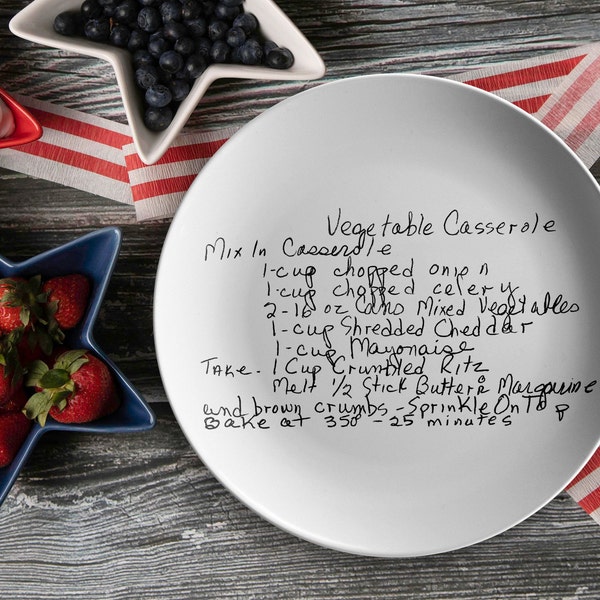 Vegetable Casserole
Mix In Casserole
1-cup chopped onion
1-cup chopped celery
2-16 oz Cans Mixed Vegetables
1-cup Shredded Cheddar
1-cup Mayonaise
Take- 1 Cup Crumbled Ritz
Melt 1/2 Stick Butter or Margarine
and brown crumbs - Sprinkle On Top
Bake at 350° - 25 minutes